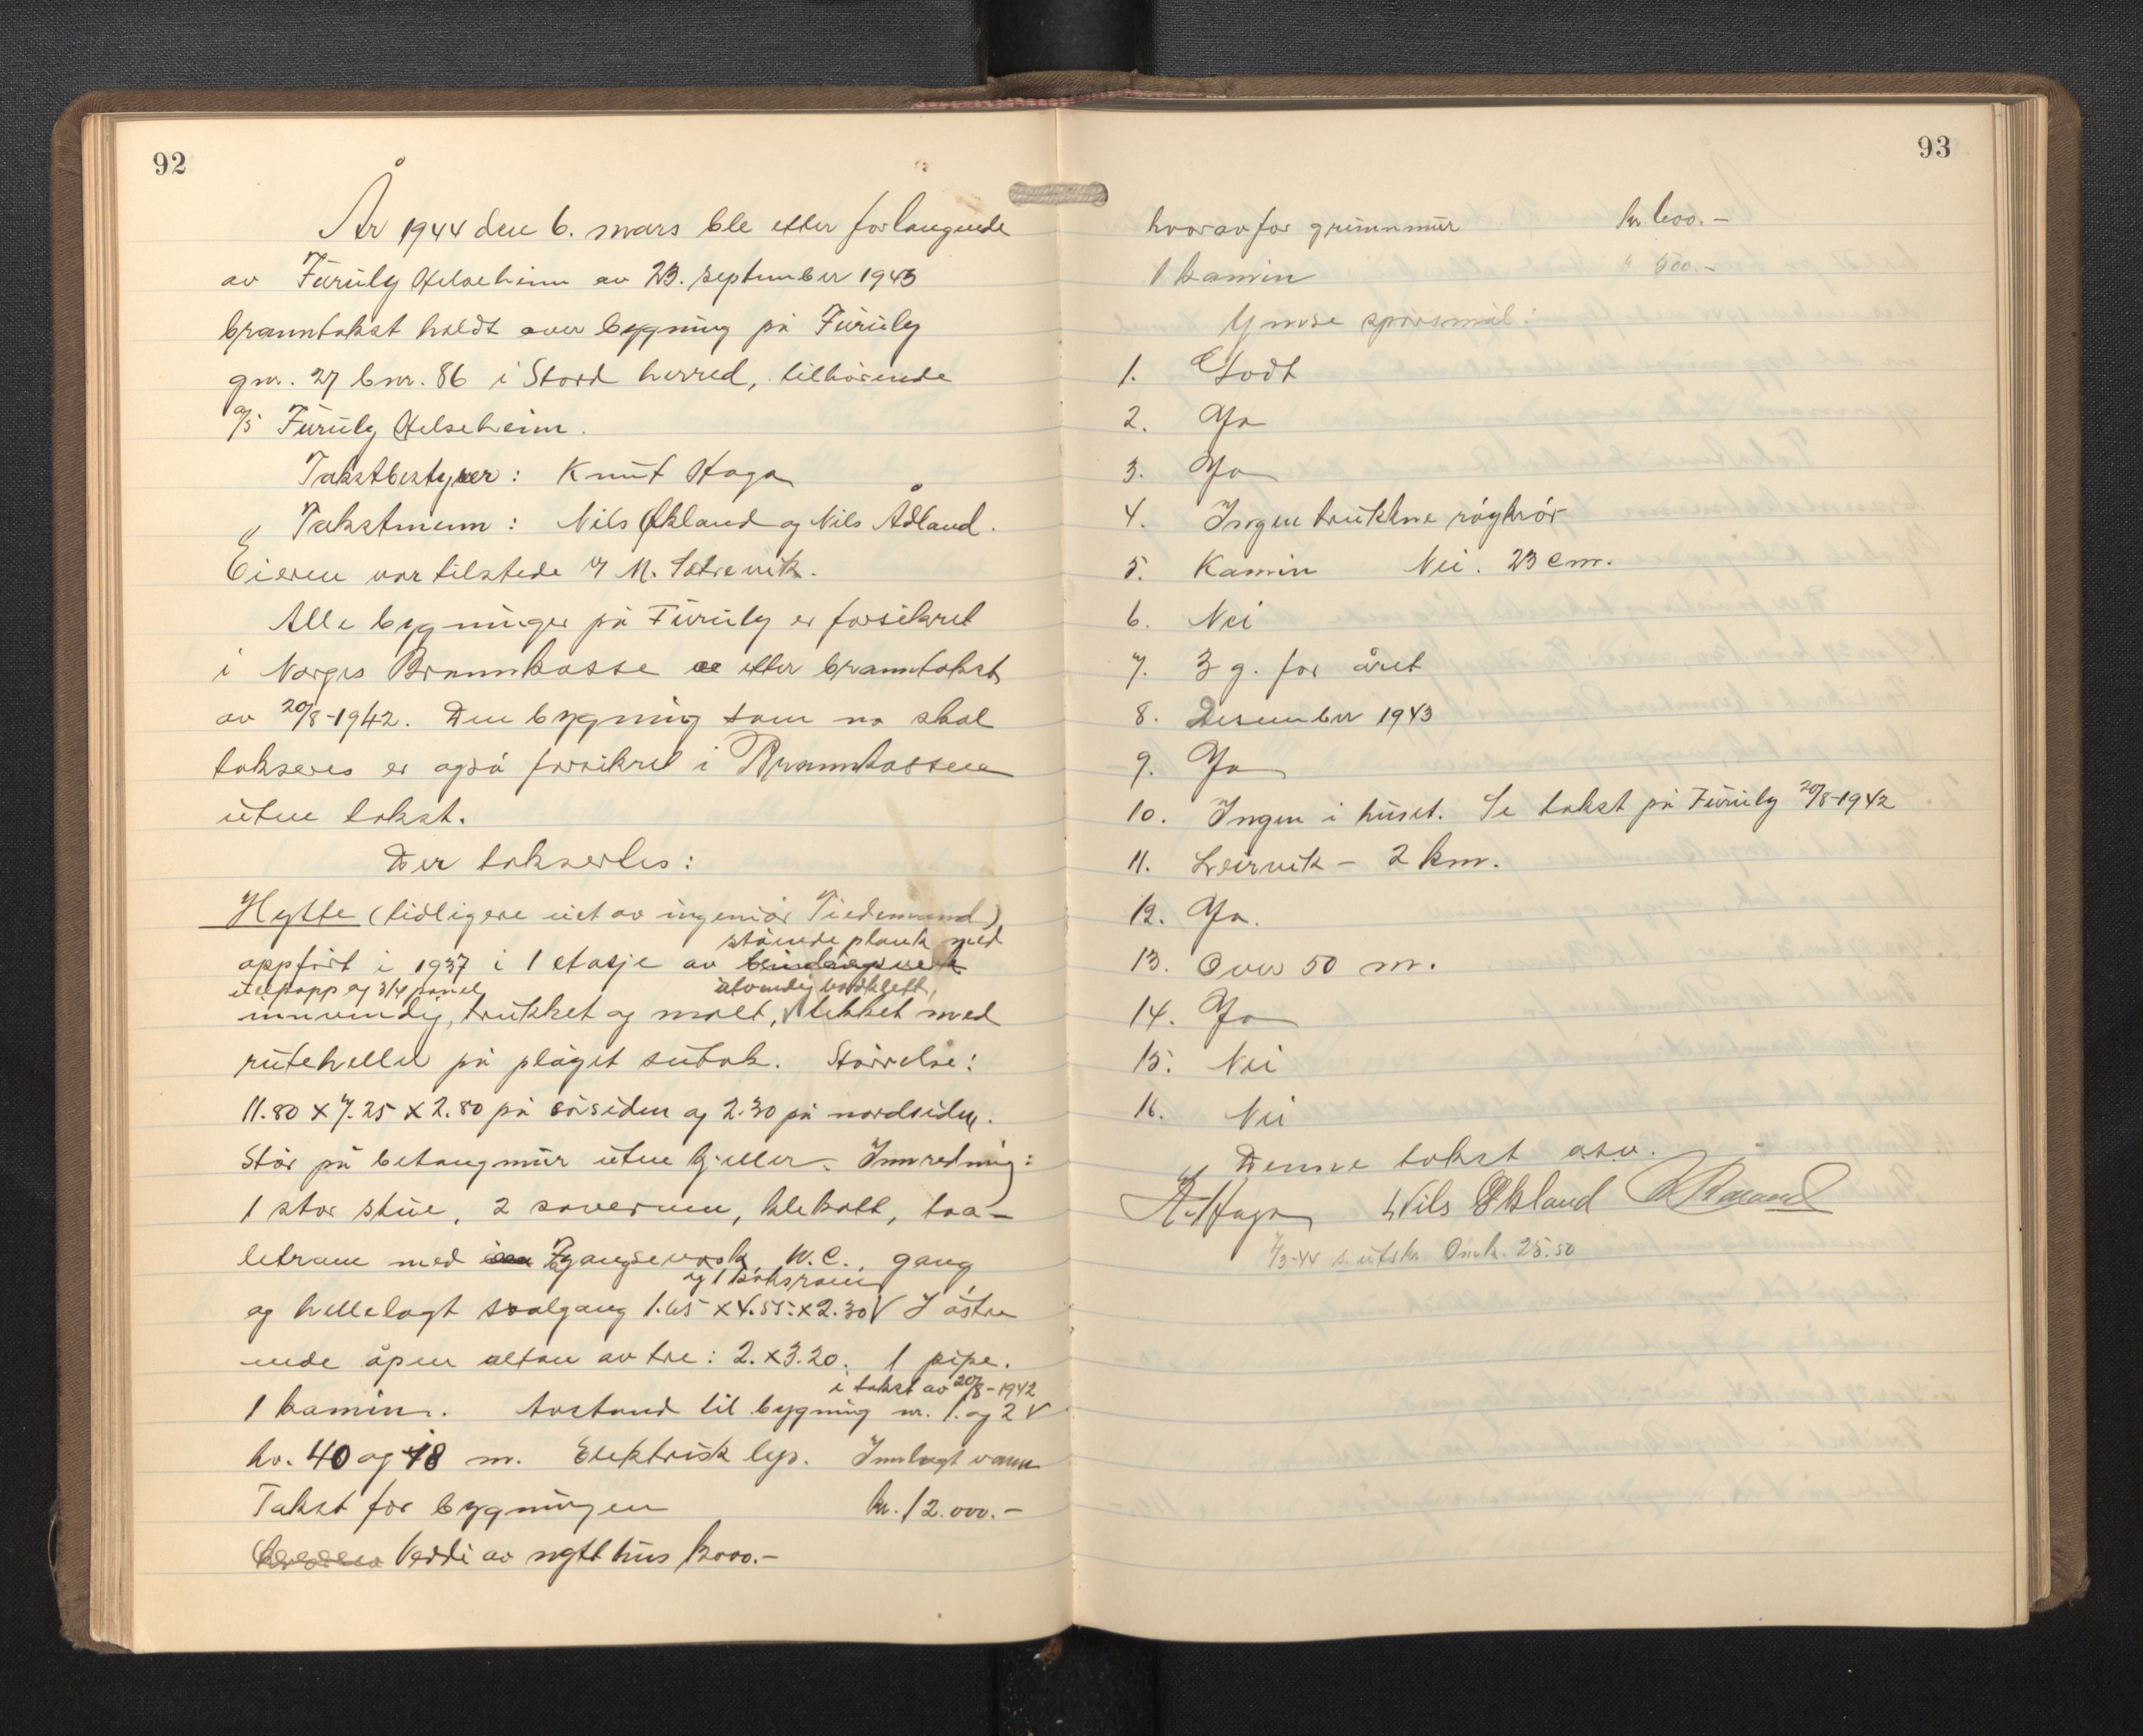 92
År 1944 den 6. mars ble etter forlangende
av Furuly Helseheim av 23. september 1943
branntakst holdt over bygning på Furuly
gnr. 27 bnr. 86 i Stord herred, tilhørende
a/s Furuly Helseheim.
Takstbestyrer: Knut Haga
Takstmenn: Nils Økland og Nils Ådland.
Eieren var tilstede v/ M. Sætrevik.
Alle bygninger på Furuly er forsikret
i Norges Brannkasse etter branntakst
av 20/8-1942. Den bygning som no skal
takseres er også forsikret i Brannkassen
uten takst.
Der taksertes:
Hytte (tidligere eiet av ingeniør Tiedemand)
stående plank med
oppført i 1937 i 1 etasje av bindingsverk
ullpapp og 3/4 panel utvendig bordklett,
innvendig, trukket og malt, tekket med
rutehelle på pløget sutak. Størrelse:
11.80 x 7.25 x 2.80 på sørsiden og 2.30 på nordsiden.
Står på betongmur uten kjeller. Innredning:
1 stor stue, 2 soverum, klekott, toa-
letrum med gangsevask, W.C., gang
og 1 boksrom
og hellelagt svalgang 1.65 x 4.55 x 2.30 V I østre
ende åpen altan av tre: 2. x 3.20. 1 pipe.
i takst av 20/8-1942
1 kamin. Avstand til bygning nr. 1. og 2 V
hv. 40 og 18 m. Elektrisk lys. Innlagt vann
Takst for bygningen kr. 12.000.-
Verdi av nytt hus 12000.-
93
hvorav for grunnmur kr. 600.-
1 kamin " 500.-
Ymse spørsmål:
1. Godt
2. Ja
3. Ja
4. Ingen trukkne røykrør
5. Kamin Nei. 23 cm.
6. Nei
7. 3 g. for året
8. Desember 1943
9. Ja
10. Ingen i huset. Se takst på Furuly 20/8-1942
11. Leirvik - 2 km.
12. Ja.
13. Over 50 m.
14. Ja
15. Nei
16. Nei
Denne takst osv.
K. Haga Nils Økland
7/3-44 s. utskr. Omk. 25.50